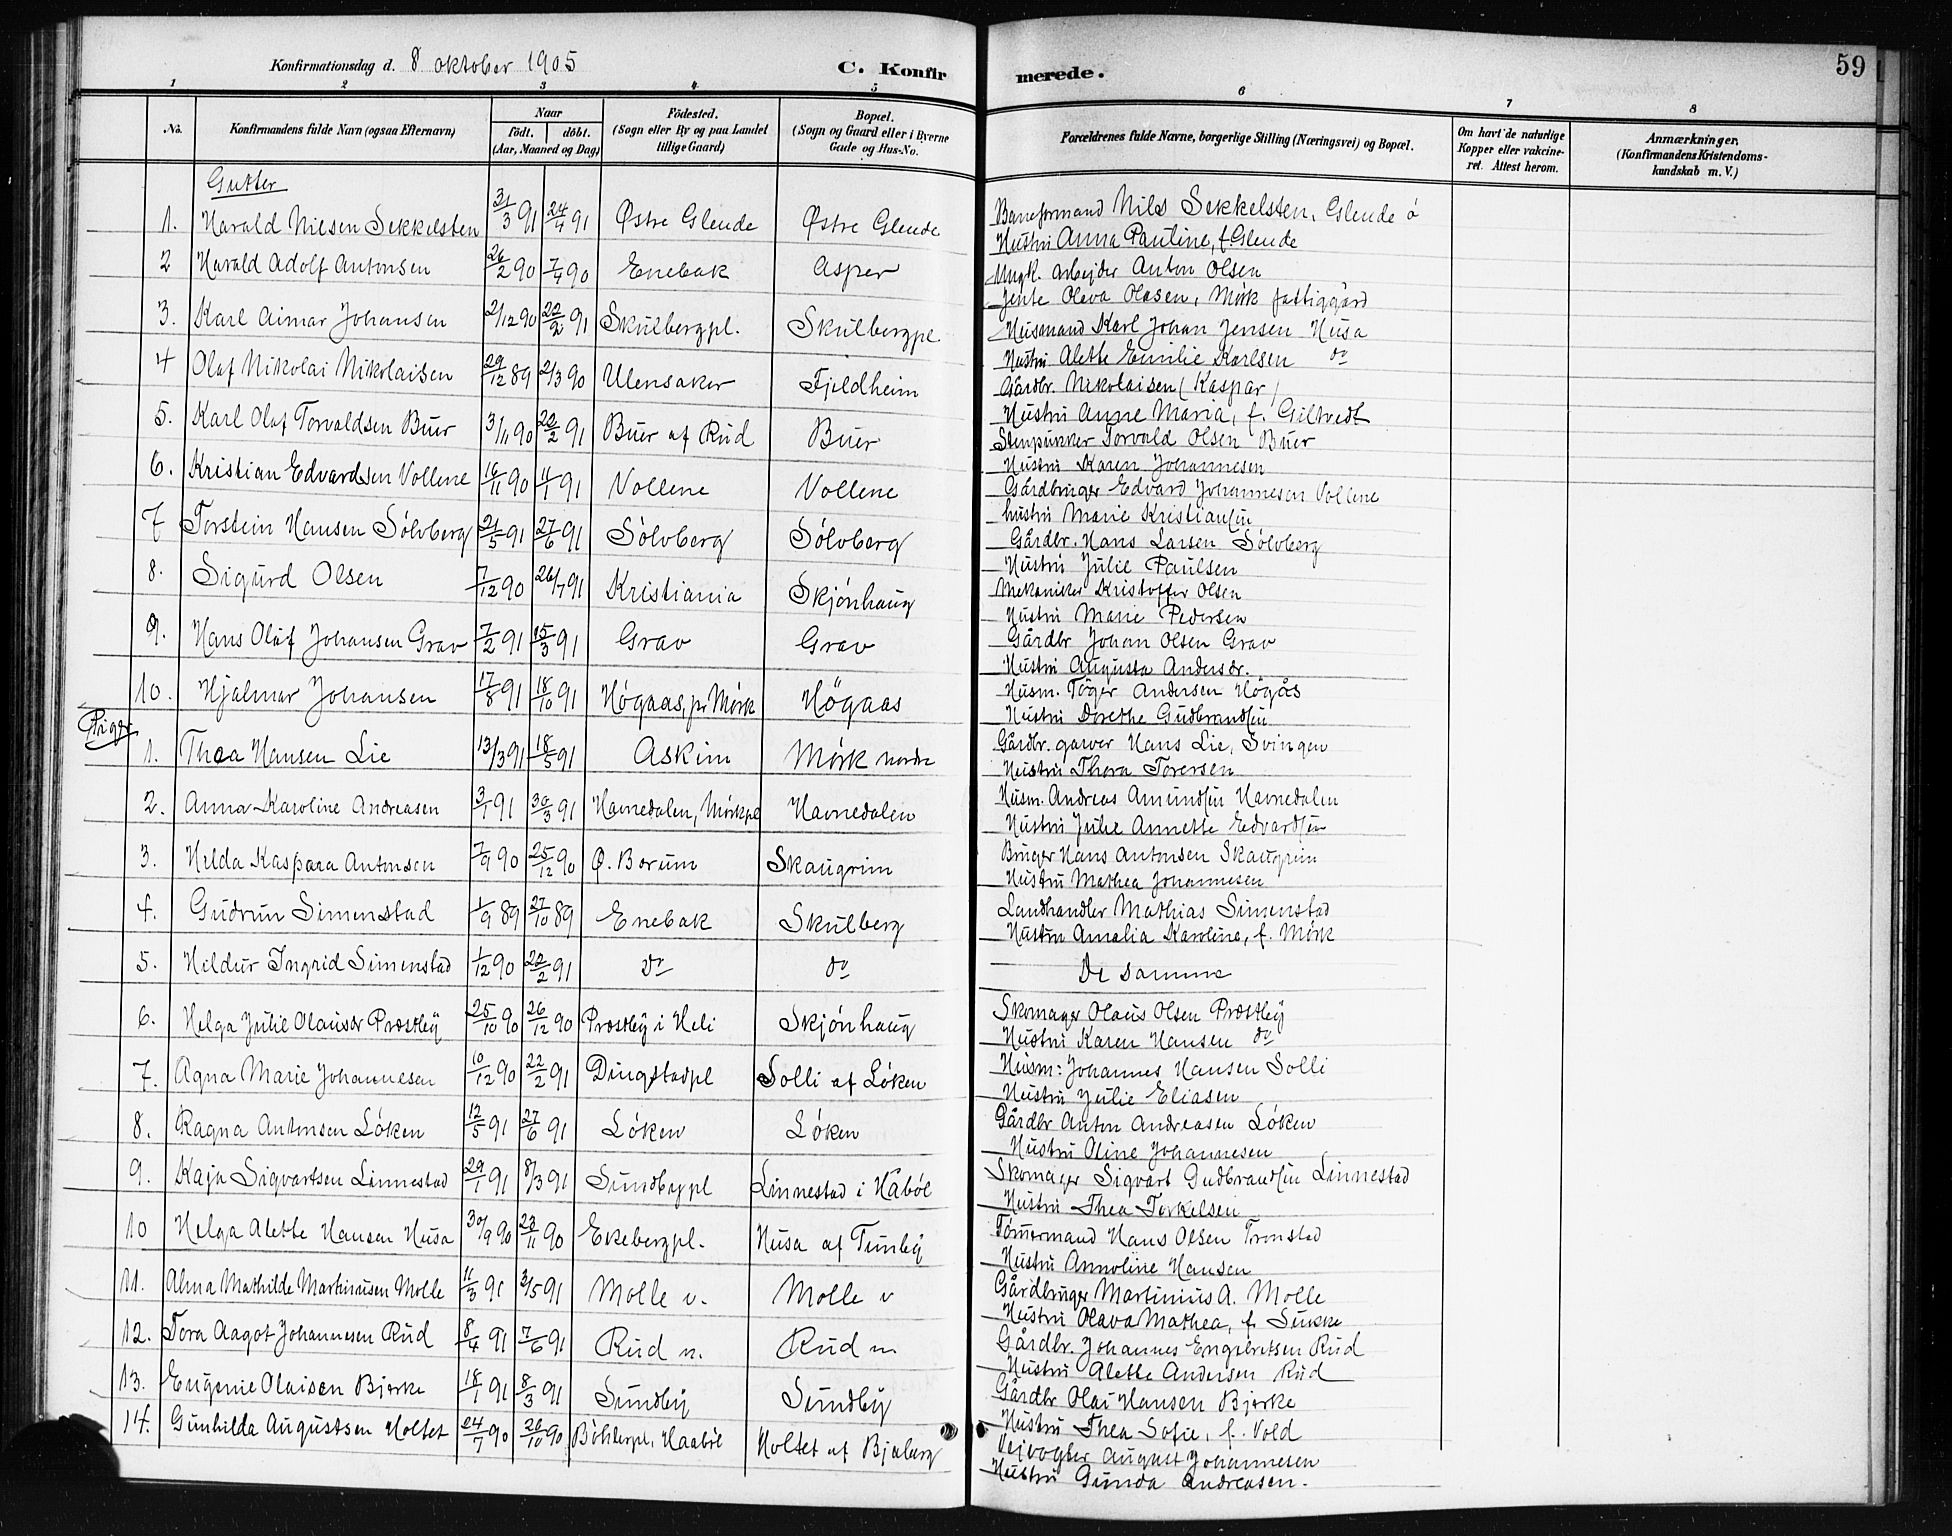 59
Konfirmationsdag d. 8 oktober 1905
C. Konfirmerede.
1 2 3 4 5 6 7 8
No.
Konfirmandens fulde Navn (ogsaa Efternavn)
Naar
født. døbt.
(Aar, Maaned og Dag)
Fødested.
(Sogn eller By og paa Landet
tillige Gaard)
Bopæl.
(Sogn og Gaard eller i Byerne
Gade og Hus-No.
Forældrenes fulde Navne, borgerlige Stilling (Næringsvei) og Bopæl.
Om havt de naturlige
Kopper eller vakcine-
ret. Attest herom.
Anmærkninger.
(Konfirmandens Kristendoms-
kundskab m. V.)
Gutter
1. Harald Nilsen Sekkelsten 31/3 91 24/4 91 Østre Glende Østre Glende Baneformand Nils Sekkelsten, Glende ø
Hustru Anna Pauline, f. Glende
2 Harald Adolf Antonsen 26/2 90 7/4 90 Enebak Asper Ungk. Arbejder Anton Olsen
Jente Oleva Olasen, Mørk fattiggård
3. Karl Aimar Johansen 2/12 90 22/2 91 Skulbergpl. Skulbergpl. Husmand Karl Johan Jensen Husa
Hustru Alette Emilie Karlsen do
4 Olaf Nikolai Nikolaisen 29/12 89 2/3 90 Ulensaker Fjeldheim Gårdbr. Nikolaisen (Kaspar)
Hustru Anne Maria, f. Giltvedt
5. Karl Olaf Torvaldsen Buer 3/11 90 22/2 91 Buer af Rud Buer Stenpukker Torvald Olsen Buer
Hustru Karen Johannesen
6. Kristian Edvardsen Vollene 16/11 90 11/1 91 Vollene Vollene Gårdbruger Edvard Johannesen Vollene
hustru Marie Kristiansen
7 Torstein Hansen Sølvberg 21/5 91 27/6 91 Sølvberg Sølvberg Gårdbr. Hans Larsen Sølvberg
Hustru Julie Paulsen
8. Sigurd Olsen 7/12 90 26/7 91 Kristiania Skjønhaug Mekaniker Kristoffer Olsen
Hustru Marie Pedersen
9. Hans Olaf Johansen Grav 7/2 91 15/3 91 Grav Grav Gårdbr Johan Olsen Grav
Hustru Augusta Andersdr.
10. Hjalmar Johansen 17/8 91 18/10 91 Høgaas, pr Mørk Høgaas Husm. Tøger Andersen Høgås
Hustru Dorethe Gudbrandsen
Piger
1. Thea Hansen Lie 13/3 91 18/5 91 Askim Mørk nordre Gårdbr. garver Hans Lie, Svingen
Hustru Thora Torersen
2. Anna Karoline Andreasen 3/1 91 30/3 91 Havnedalen, Mørkpl Havnedalen Husm. Andreas Amundsen Havnedalen
Hustru Julie Annette Edvardsen
3. Helda Kaspara Antonsen 7/9 90 25/12 90 Ø. Børum Skaugrim Bruger Hans Antonsen Skaugrim
Hustru Mathea Johannesen
4. Gudrun Simenstad 1/9 89 27/10 89 Enebak Skulberg Landhandler Mathias Simenstad
Hustru Amalia Karoline, f. Mørk
5. Hildur Ingrid Simenstad 1/12 90 22/2 91 do do De samme
6. Helga Julie Olausdr Præstby 25/10 90 26/12 90 Præstby i Heli Skjønhaug Skomager Olaus Olsen Præstby
Hustru Karen Hansen do
7. Agna Marie Johannesen 10/12 90 22/2 91 Dingstadpl Solli af Løken Husm: Johannes Hansen Solli
Hustru Julie Eliasen
8. Ragna Antonsen Løken 12/5 91 27/6 91 Løken Løken Gårdbr Anton Andreasen Løken
Hustru Oline Johannesen
9. Kaja Sigvartsen Linnestad 29/1 91 8/3 91 Sundbypl Linnestad i Håbøl Skomager Sigvart Gudbrandsen Linnestad
Hustru Thea Torkelsen
10 Helga Alette Hansen Husa 30/9 90 23/11 90 Ekebergpl. Husa af Tunby Tømmermand Hans Olsen Tronstad
Hustru Annoline Hansen
11. Alma Mathilde Martinusen Molle 11/3 91 3/5 91 Molle v. Molle v Gårdbruger Martinius A. Molle
Hustru Olava Mathea, f.
12. Tora Aagot Johannesen Rud 8/4 91 7/6 91 Rud n. Rud n Gårdbr. Johannes Engebretsen Rud
Hustru Alette Andersen Rud
13. Eugenie Olaisen Bjerke 18/1 91 8/3 91 Sundby Sundby Gårdbr Olai Hansen Bjerke
Hustru Thea Sofie, f. Vold
14. Gunhilda Augustsen Holtet 24/7 90 26/10 90 Haabøl Holtet af Bjaberg Vejvogter August Johannesen
Hustru Gunda Andreasen.